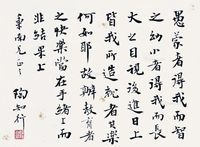 愚蒙者得我而智
之幼小者得我而長
大之日後進日上
皆我所造就者其樂
何如耶故辦教育者
之快樂當在手續上而
非結果上
東南兄正之
陶知行